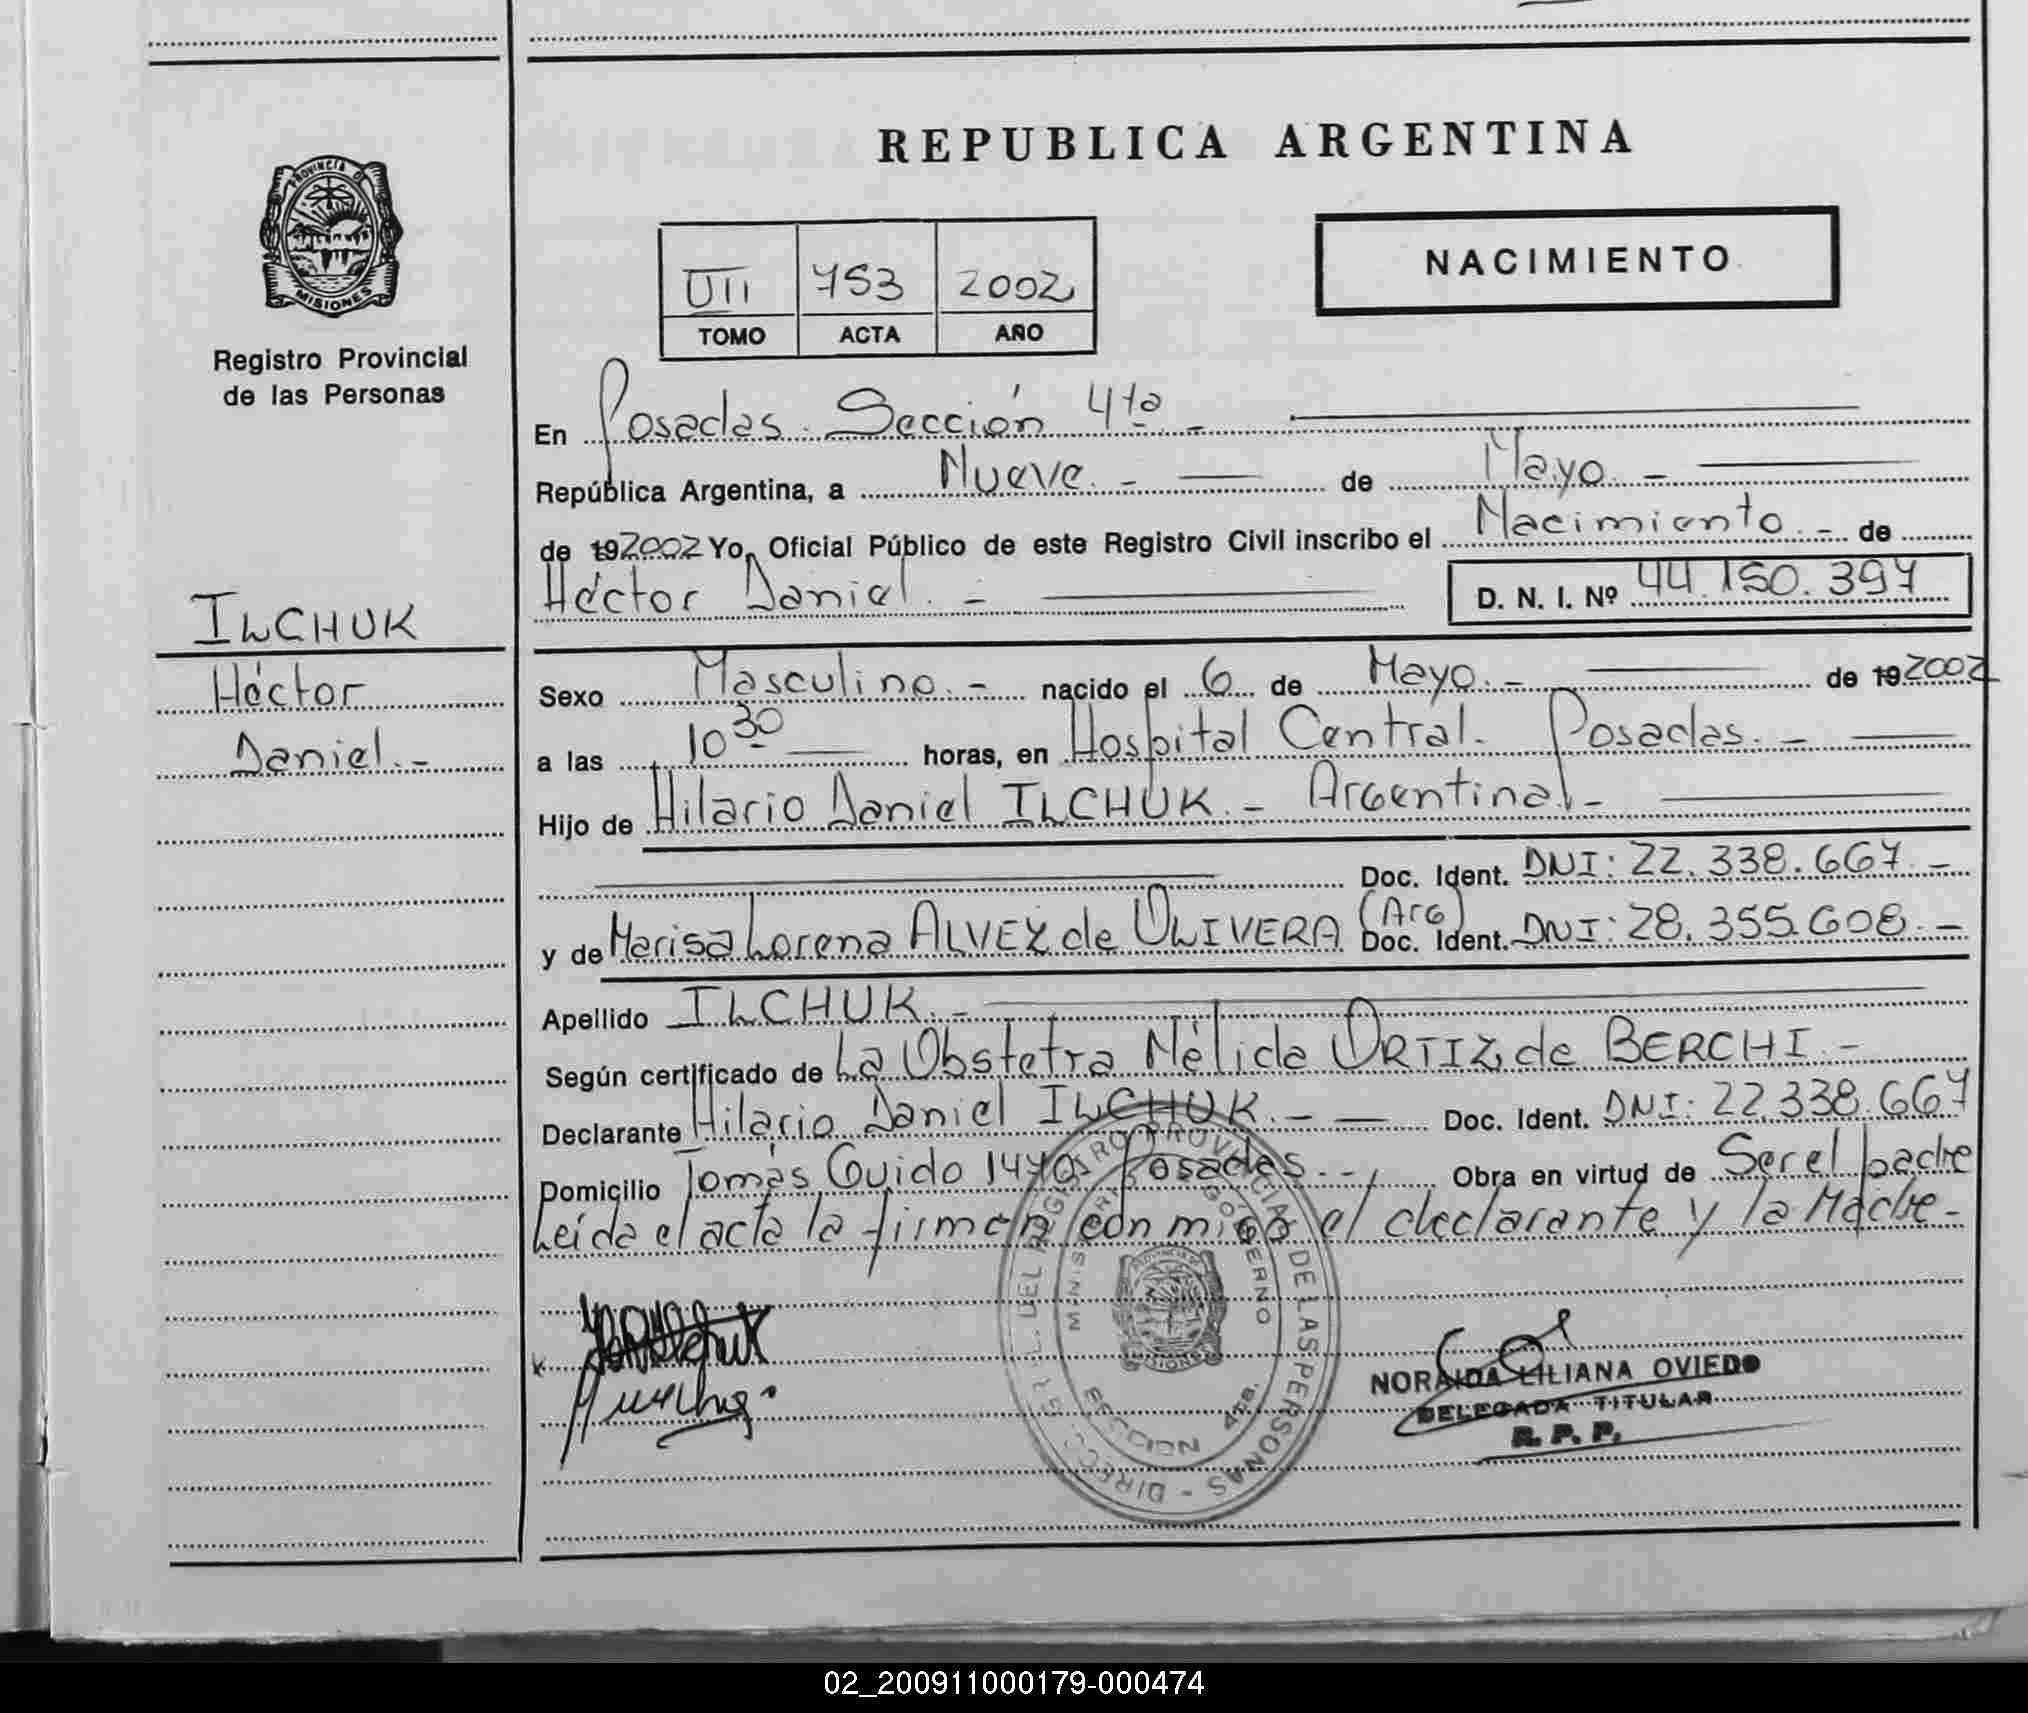 REPUBLICA ARGENTINA
PROVINCIA D
MISIONES
Registro Provincial
de las Personas
VII 753 2002
TOMO ACTA AÑO
NACIMIENTO
En Posadas. Sección 4ta.-
República Argentina, a Nueve.- de Mayo.-
de 192002 Yo, Oficial Público de este Registro Civil inscribo el Nacimiento.- de
Héctor Daniel.- D. N. I. Nº 44.150.397
ILCHUK
Héctor
Daniel.-
Sexo Masculino.- nacido el 6 de Mayo.- de 192002
a las 10 30 horas, en Hospital Central. Posadas.-
Hijo de Hilario Daniel ILCHUK.- Argentina.-
Doc. Ident. DNI: 22.338.667.-
y de Marisa Lorena ALVEZ de OLIVERA (Arg) Doc. Ident. DNI: 28.355.608.-
Apellido ILCHUK.-
Según certificado de La Obstetra Nélida ORTIZ de BERCHI.-
Declarante Hilario Daniel ILCHUK.- Doc. Ident. DNI: 22.338.667
Domicilio Tomás Guido 1470. Posadas.-, Obra en virtud de Ser el padre
Leída el acta la firman con migo el declarante y la Madre-
DIRECC. GRL. DEL REGISTRO PROVINCIAL DE LAS PERSONAS -
MINISTERIO GOBIERNO
SECCION 4ta.
MISIONES
NORAIDA LILIANA OVIEDO
DELEGADA TITULAR
R. P. P.
02_200911000179-000474